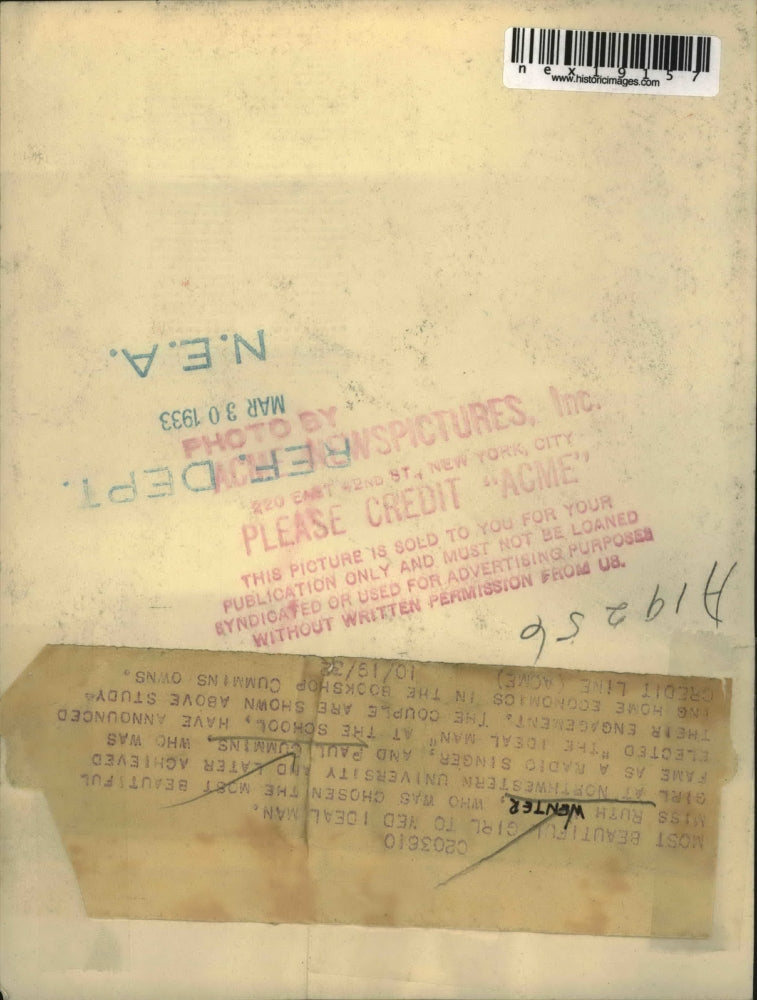 nex19157
www.historicimages.com
N.E.A.
MAR 30 1933
REF. DEPT.
PHOTO BY
ACME NEWSPICTURES, Inc.
220 EAST 42ND ST., NEW YORK, CITY
PLEASE CREDIT "ACME"
THIS PICTURE IS SOLD TO YOU FOR YOUR
PUBLICATION ONLY AND MUST NOT BE LOANED
SYNDICATED OR USED FOR ADVERTISING PURPOSES
WITHOUT WRITTEN PERMISSION FROM US.
A19256
C203610
MOST BEAUTIFUL GIRL TO WED IDEAL MAN.
MISS RUTH WENTER, WHO WAS CHOSEN THE MOST BEAUTIFUL
GIRL AT NORTHWESTERN UNIVERSITY AND LATER ACHIEVED
FAME AS A RADIO SINGER, AND PAUL CUMMINS WHO WAS
ELECTED "THE IDEAL MAN" AT THE SCHOOL, HAVE ANNOUNCED
THEIR ENGAGEMENT. THE COUPLE ARE SHOWN ABOVE STUDY-
ING HOME ECONOMICS IN THE BOOKSHOP CUMMINS OWNS.
CREDIT LINE (ACME)